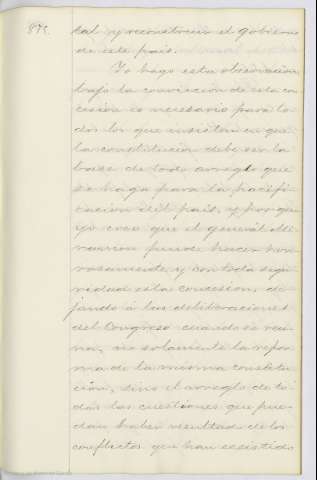 875.
tal y reconstruir el gobierno
de este pais.
Yo hago esta observacion
bajo la conviccion de esta con
cesion es necesario para to
dos los que insisten en que
la constitucion debe ser la
base de todo arreglo que
se haga para la pacifi
cacion del pais, y porque
yo creo que el general Mi
ramon puede hacer hon
rosamente, y con toda segu
ridad esta concesion, de
jando á las deliberaciones
del Congreso cuando se reu
na, no solamente la refor
ma de la misma constitu
cion, sino el arreglo de to
das las cuestiones que pue
dan haber resultado de los
conflictos que han existido